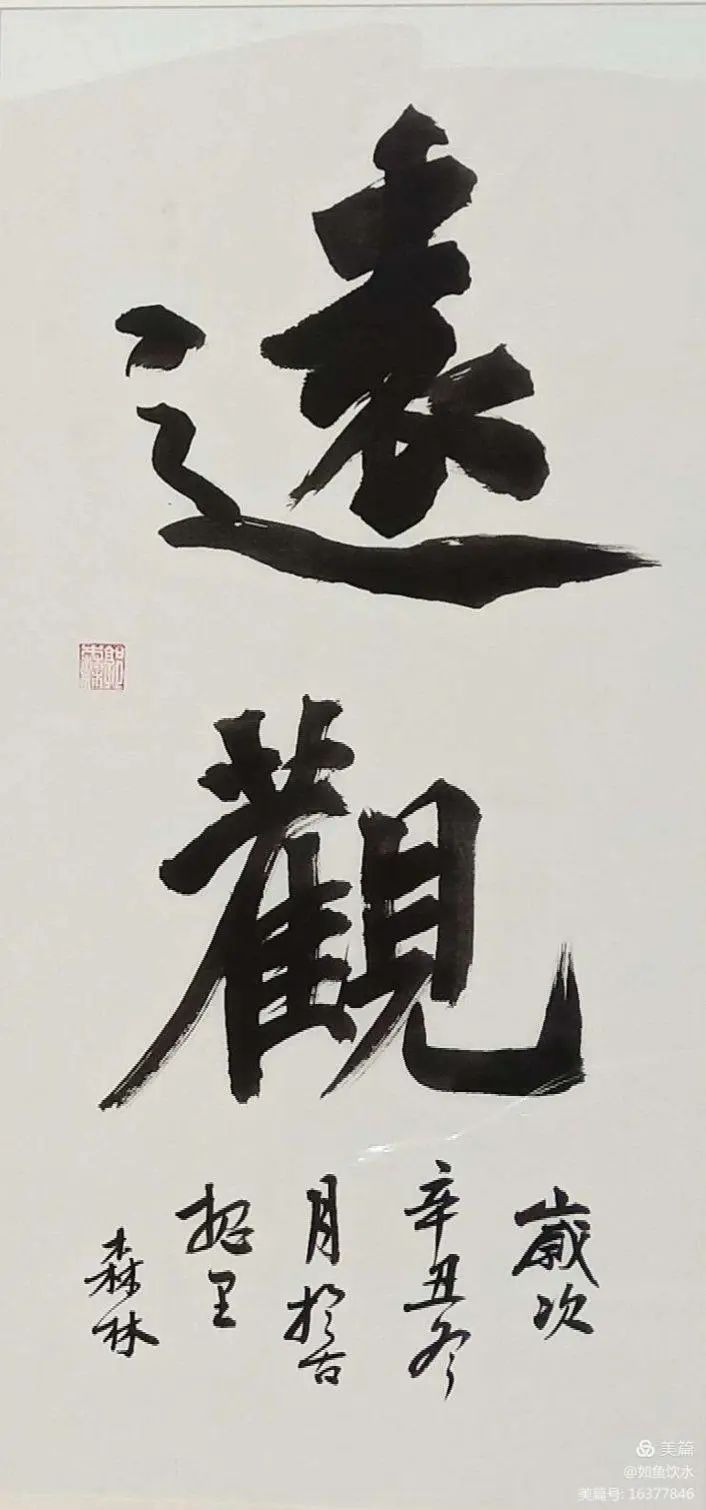 遠
觀
歲次
辛丑冬
月於古
里
森林
美篇
@如鱼饮水
美篇号: 16377846